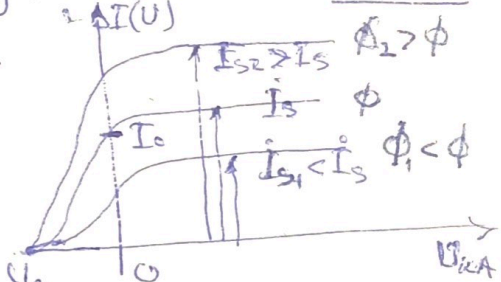 I(U)
I_{S2} > I_S Φ_2 > Φ
i_S Φ
I_0
i_{S1} < i_S Φ_1 < Φ
0
U_{KA}